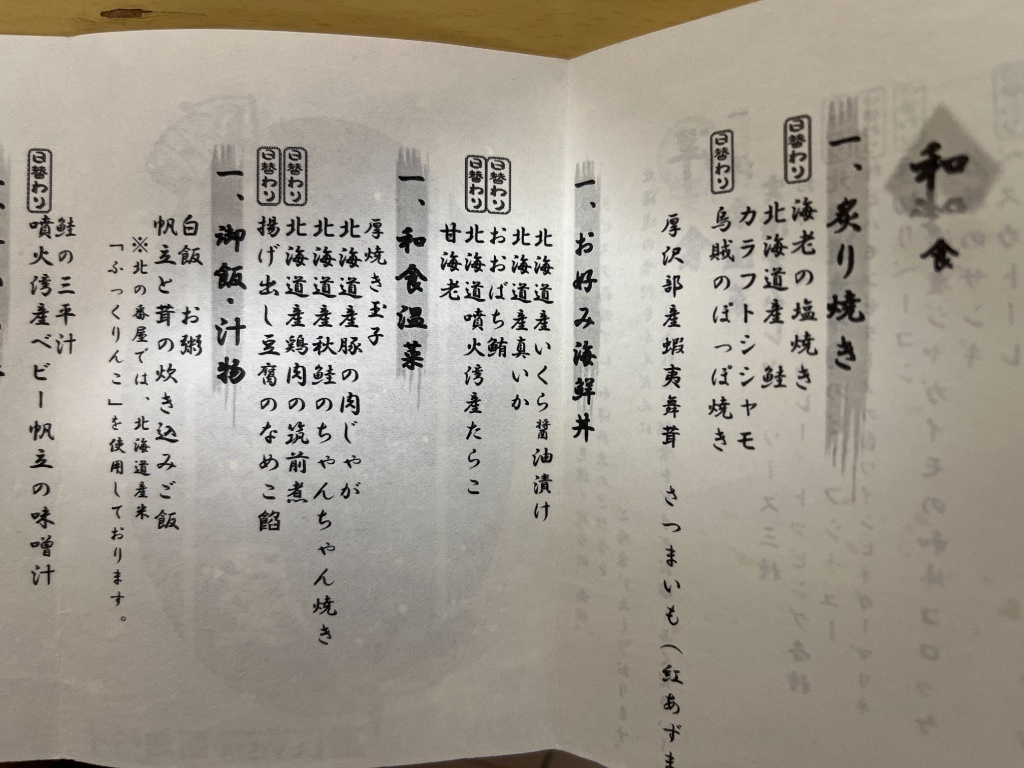 和食
一、炙り焼き
日替わり
海老の塩焼き
北海道産 鮭
カラフトシシャモ
日替わり
烏賊のぽっぽ焼き
厚沢部産蝦夷舞茸 さつまいも(紅あずま
一、お好み海鮮丼
北海道産いくら醤油漬け
北海道産真いか
日替わり
おおばち鮪
日替わり
北海道噴火湾産たらこ
甘海老
一、和食温菜
厚焼き玉子
北海道産豚の肉じゃが
北海道産秋鮭のちゃんちゃん焼き
日替わり
北海道産鶏肉の筑前煮
日替わり
揚げ出し豆腐のなめこ餡
一、御飯・汁物
白飯 お粥
帆立と茸の炊き込みご飯
※北の番屋では、北海道産米
「ふっくりんこ」を使用しております。
鮭の三平汁
日替わり
噴火湾産ベビー帆立の味噌汁